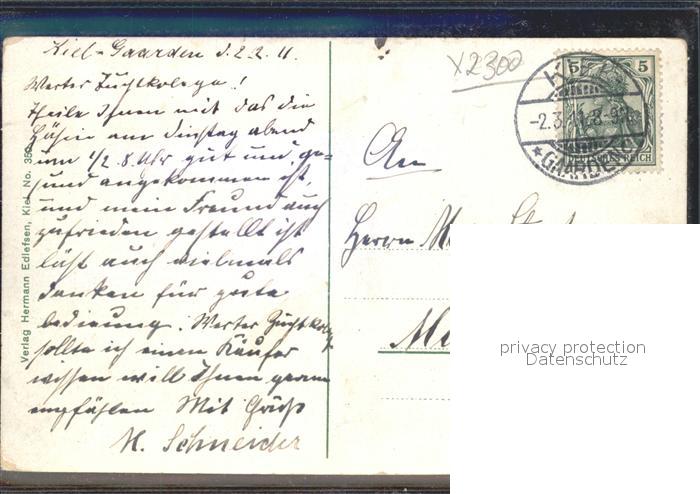 Kiel-Gaarden d. 2.3. 11.
Werter Zuchtkolege!
Theile Ihnen mit das die
Häsin am Dinstag abend
um 1/2 8. Uhr gut und ge-
sund angekommen ist
und mein Freund auch
zufrieden gestellt ist
läst auch vielmals
danken für gute
bedienung. Werter Zuchtkolege
sollte ich einen Käufer
wissen will Ihnen gerne
empfählen Mit Gruß
H. Schneider
Verlag Hermann Edlefsen, Kiel No.
x2300
An
Herrn
5 5
KIEL
-2.3.11. 8-9
*GAARDEN
REICH
privacy protection
Datenschutz